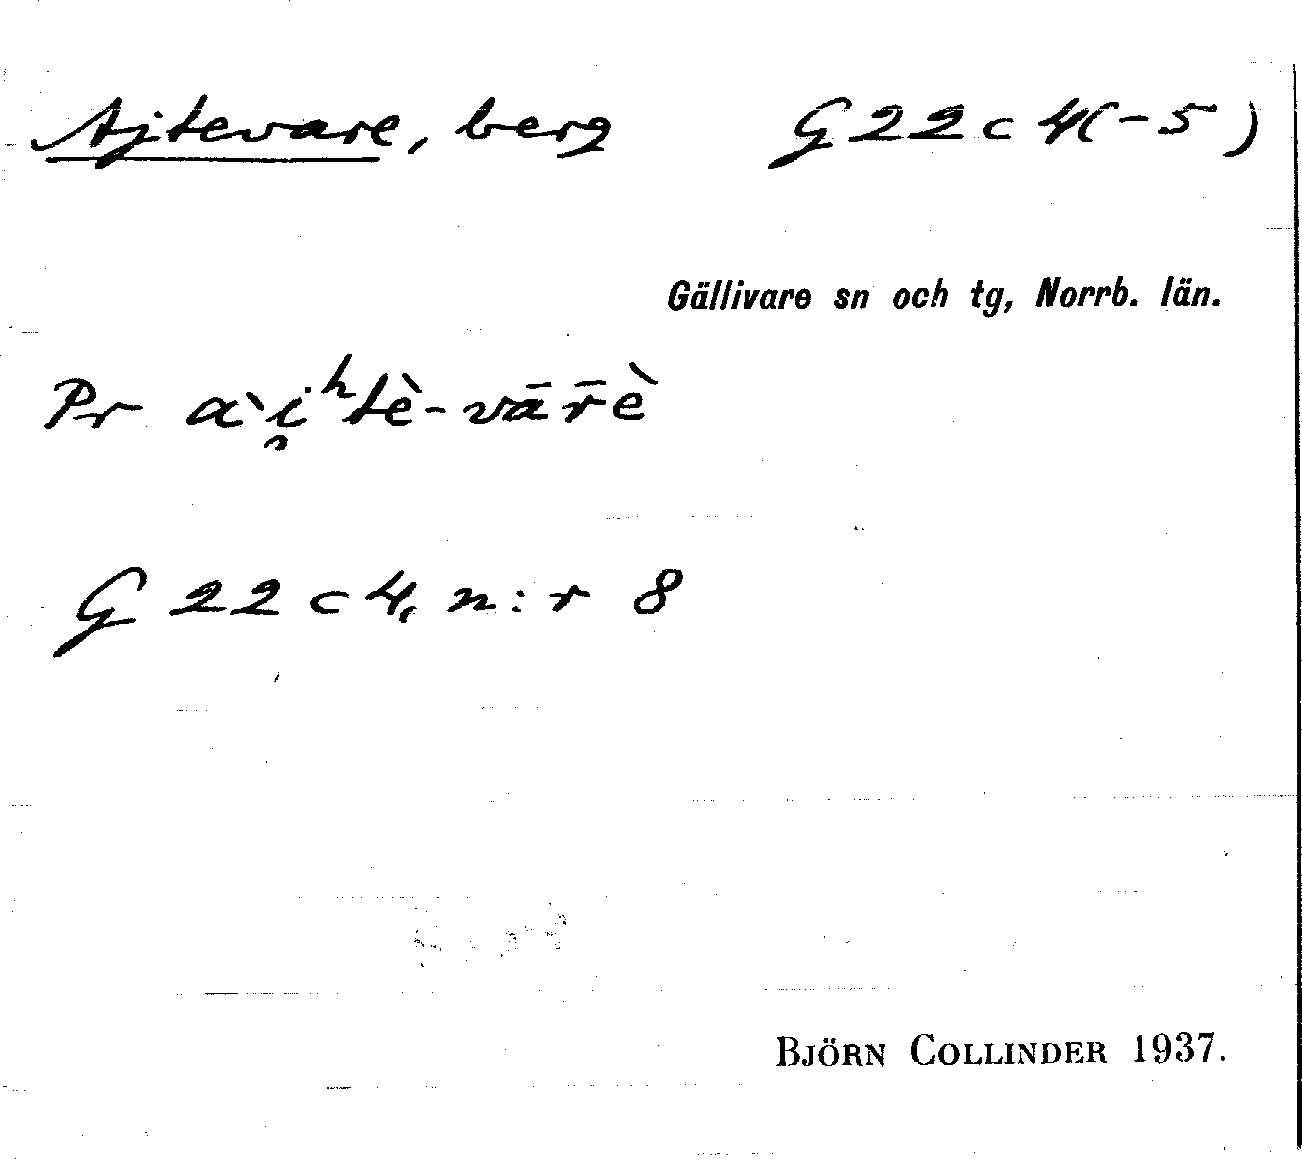 Ajtevare, berg G 22 c 4(-5)
Gällivare sn och tg, Norrb. län.
Pr ài̯ʰtè-vār̄è
G 22 c 4, n:r 8
BJÖRN COLLINDER 1937.